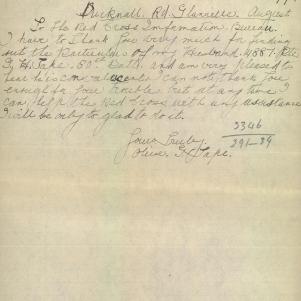 Bucknall Rd. Glanville August
To the Red Cross Information Bureau.
I have to thank you very much for finding
out the Particulars of my Husband, 4587. Pte
G. H. Tape. 50th Batt. and am very pleased to
hear he is convalescent I can not thank you
enough for your trouble but at any time I
can help the Red Cross with any assistance
I will be only to glad to do it.
3346
Yours Truly
291-84
Olive. Tape.